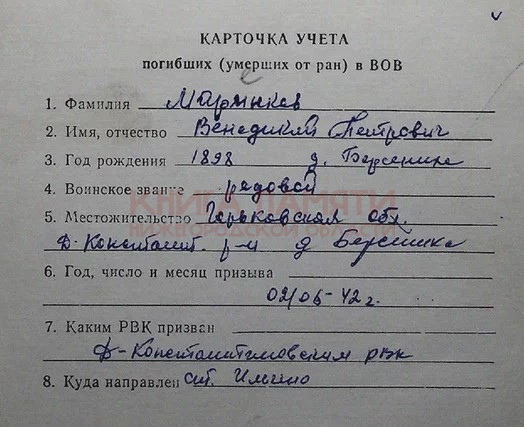 КАРТОЧКА УЧЕТА
погибших (умерших от ран) в ВОВ
1. Фамилия
2. Имя, отчество Венедикт Петрович
3. Год рождения 1898 д. Березники
4. Воинское звание рядовой
КНИГА ПАМЯТИ
5. Местожительство Горьковская обл.
НИЖЕГОРОДСКОЙ ОБЛАСТИ
Д-Константин. р-н д
6. Год, число и месяц призыва
02/06-42 г.
7. Каким РВК призван
Д-Константиновским рвк
8. Куда направлен ст.